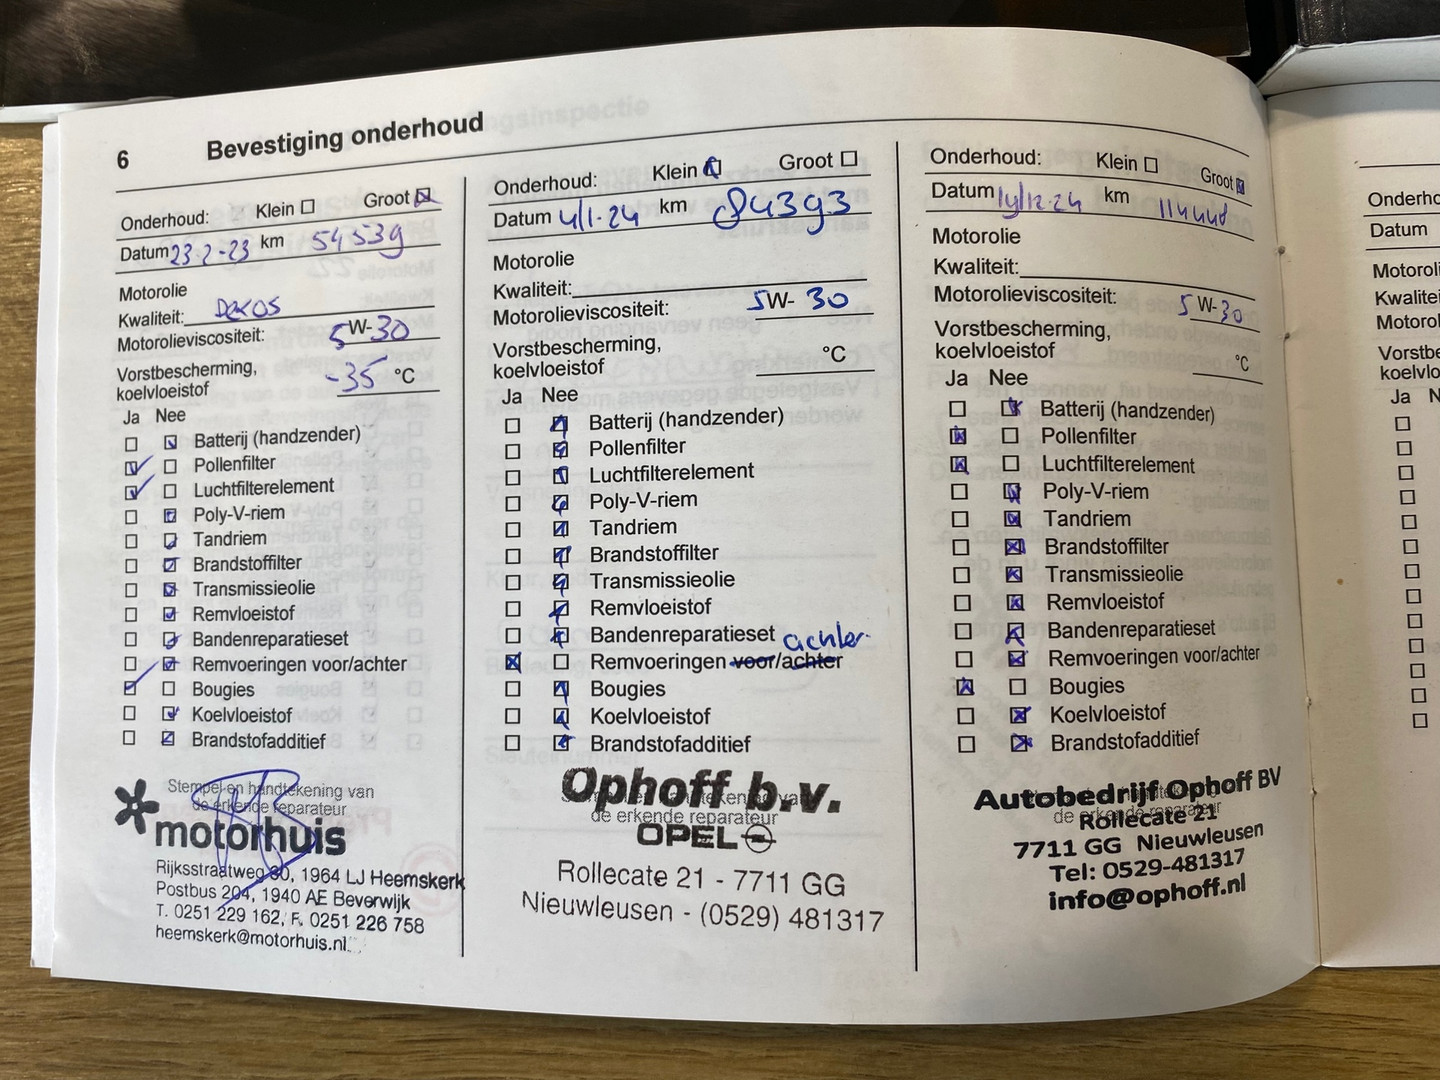 6 Bevestiging onderhoud
Onderhoud: Klein Groot
Datum 23-2-23 km 54539
Motorolie
Kwaliteit: Dexos
Motorolieviscositeit: 5W-30
Vorstbescherming,
koelvloeistof -35 °C
Ja Nee
Batterij (handzender)
Pollenfilter
Luchtfilterelement
Poly-V-riem
Tandriem
Brandstoffilter
Transmissieolie
Remvloeistof
Bandenreparatieset
Remvoeringen voor/achter
Bougies
Koelvloeistof
Brandstofadditief
Stempel en handtekening van
de erkende reparateur
motorhuis
Rijksstraatweg 30, 1964 LJ Heemskerk
Postbus 204, 1940 AE Beverwijk
T. 0251 229 162, F. 0251 226 758
heemskerk@motorhuis.nl
Onderhoud: Klein Groot
Datum 4/1-24 km 84393
Motorolie
Kwaliteit:
Motorolieviscositeit: 5W-30
Vorstbescherming,
koelvloeistof °C
Ja Nee
Batterij (handzender)
Pollenfilter
Luchtfilterelement
Poly-V-riem
Tandriem
Brandstoffilter
Transmissieolie
Remvloeistof
Bandenreparatieset achter
Remvoeringen voor/achter
Bougies
Koelvloeistof
Brandstofadditief
Ophoff b.v.
de erkende reparateur
OPEL
Rollecate 21 - 7711 GG
Nieuwleusen - (0529) 481317
Onderhoud: Klein Groot
Datum 14/12-24 km 114448
Motorolie
Kwaliteit:
Motorolieviscositeit: 5W-30
Vorstbescherming,
koelvloeistof °C
Ja Nee
Batterij (handzender)
Pollenfilter
Luchtfilterelement
Poly-V-riem
Tandriem
Brandstoffilter
Transmissieolie
Remvloeistof
Bandenreparatieset
Remvoeringen voor/achter
Bougies
Koelvloeistof
Brandstofadditief
Autobedrijf Ophoff BV
de erkende reparateur
Rollecate 21
7711 GG Nieuwleusen
Tel: 0529-481317
info@ophoff.nl
Datum
Ja